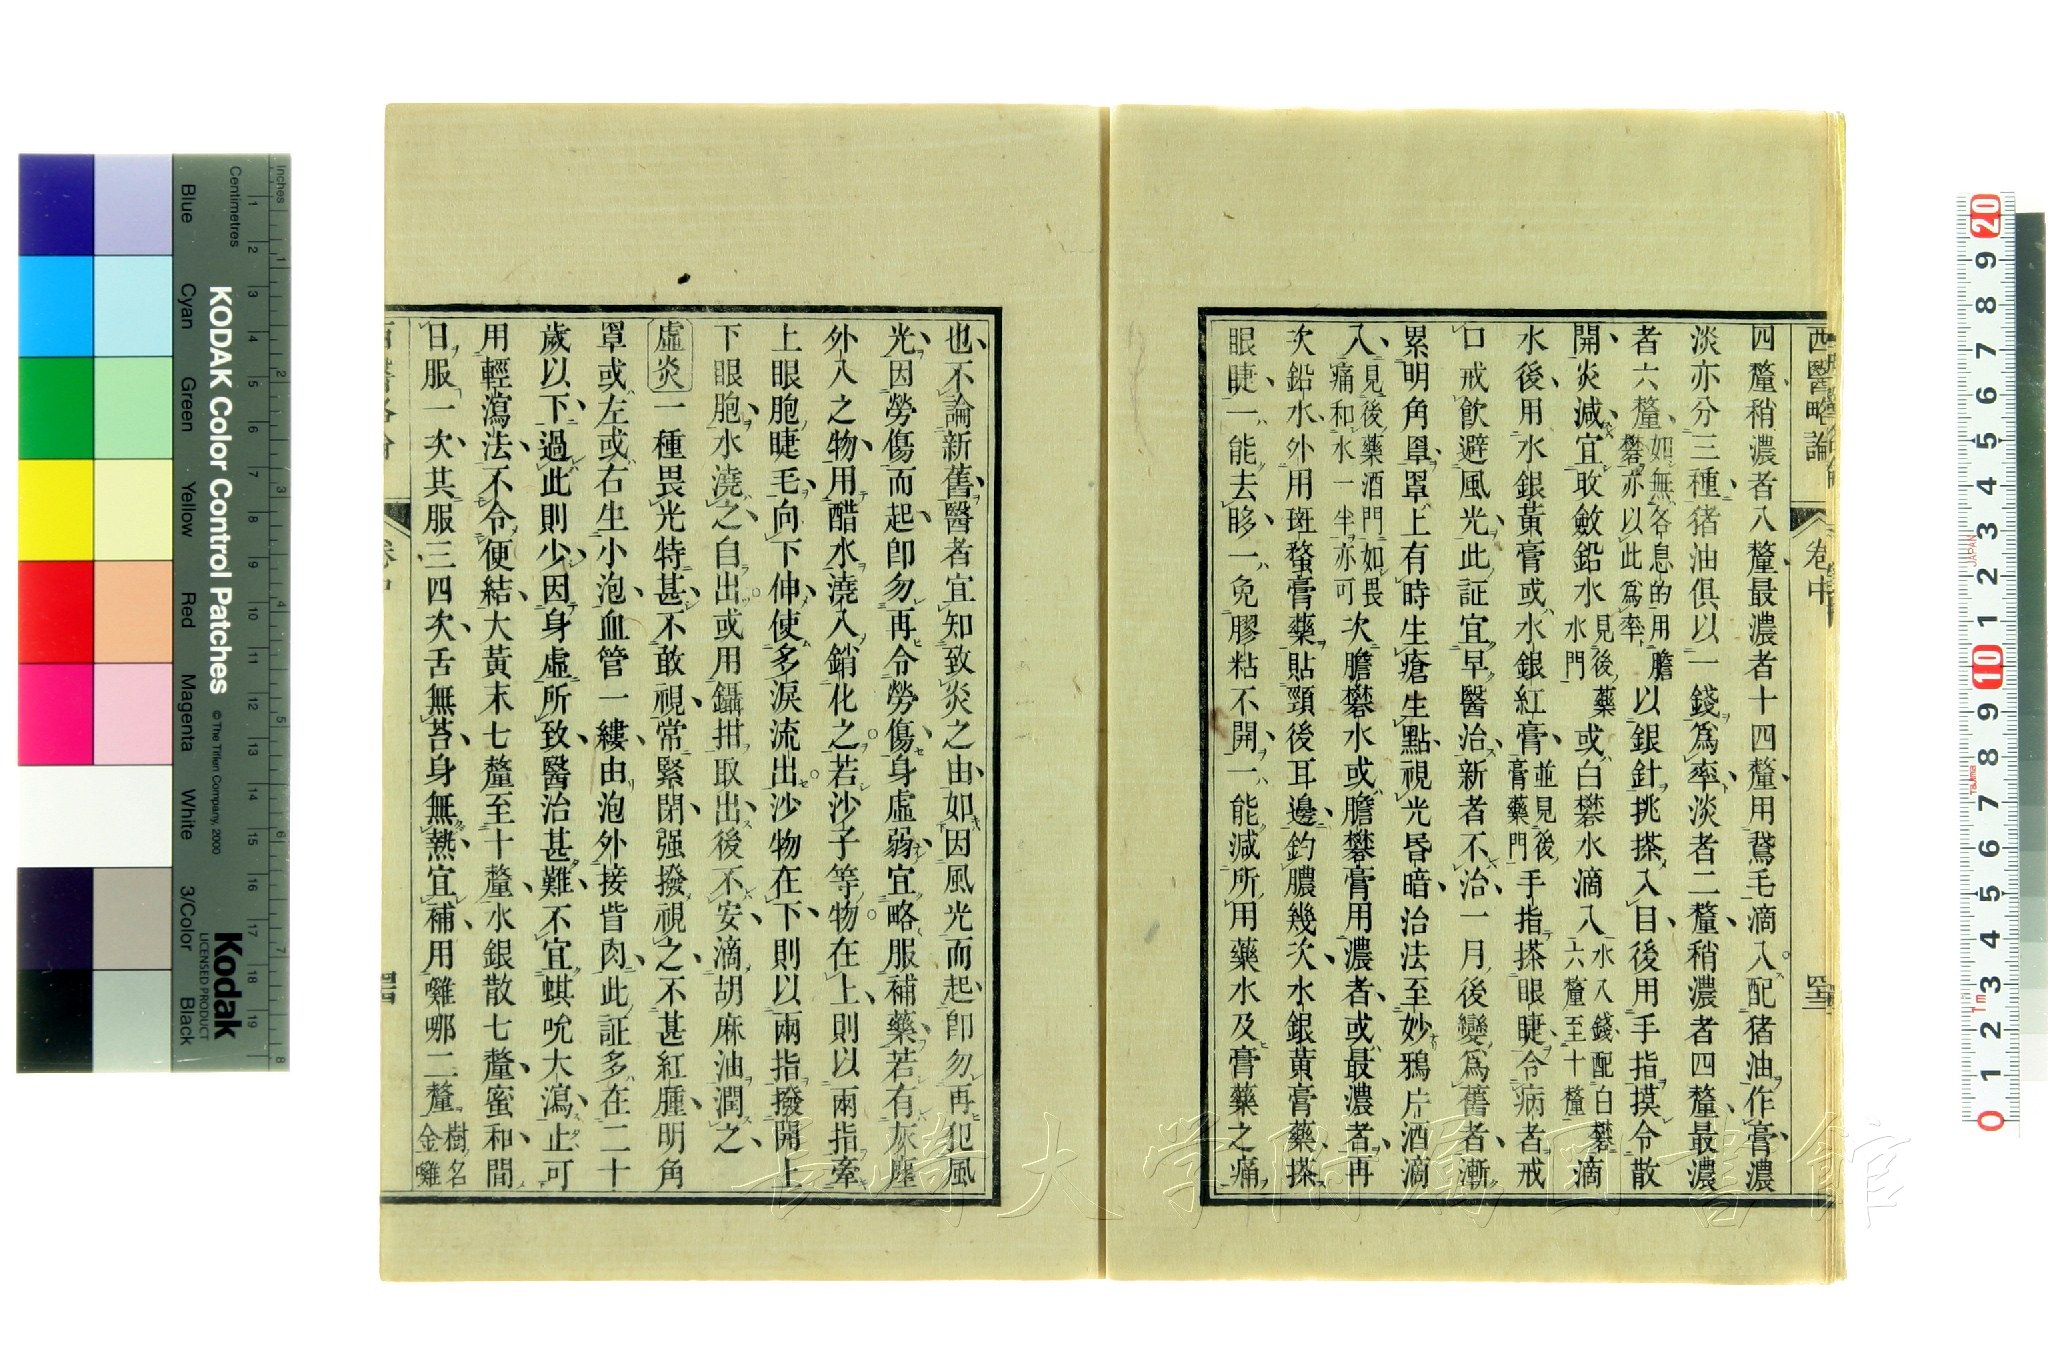 西醫略論 卷中 四三
四釐稍濃者八釐最濃者十四釐用鵞毛滴入配猪油作膏濃
淡亦分三種猪油俱以一錢爲率淡者二釐稍濃者四釐最濃
者六釐如無各息的用膽礬亦以此爲率以銀針挑搽入目後用手指摸令散
開炎減宜收斂鉛水見後藥水門或白礬水滴入水入錢配白礬六釐至十釐滴
水後用水銀黃膏或水銀紅膏並見後膏藥門手指搽眼睫令病者戒
口戒飲避風光此証宜早醫治新者不治一月後變爲舊者漸
累明角罩罩上有時生瘡生點視光昏暗治法至妙鴉片酒滴
入見後藥酒門如畏痛和水一半亦可次膽礬水或膽礬膏用濃者或最濃者再
次鉛水外用斑蝥膏藥貼頸後耳邊釣膿幾次水銀黃膏藥搽
眼睫一能去眵一免膠粘不開一能減所用藥水及膏藥之痛
也不論新舊醫者宜知致炎之由如因風光而起卽勿再犯風
光因勞傷而起卽勿再令勞傷身虛弱宜略服補藥若有灰塵
外入之物用醋水澆入銷化之若沙子等物在上則以兩指牽
上眼胞睫毛向下伸使多淚流出沙物在下則以兩指撥開上
下眼胞水澆之自出或用鑷拑取出後不安滴胡麻油潤之
虛炎一種畏光特甚不敢視常緊閉强撥視之不甚紅腫明角
罩或左或右生小泡血管一縷由泡外接眥肉此証多在二十
歲以下過此則少因身虛所致醫治甚難不宜蜞吮大瀉止可
用輕瀉法不令便結大黃末七釐至十釐水銀散七釐蜜和間
日服一次其服三四次舌無苔身無熱宜補用雞哪二釐樹名金雞
卷中 四四
Kodak
LICENSED PRODUCT
KODAK Color Control Patches
© The Tiffen Company, 2000
Inches
Centimetres
Blue
Cyan
Green
Yellow
Red
Magenta
White
3/Color
Black
長崎大学附属図書館